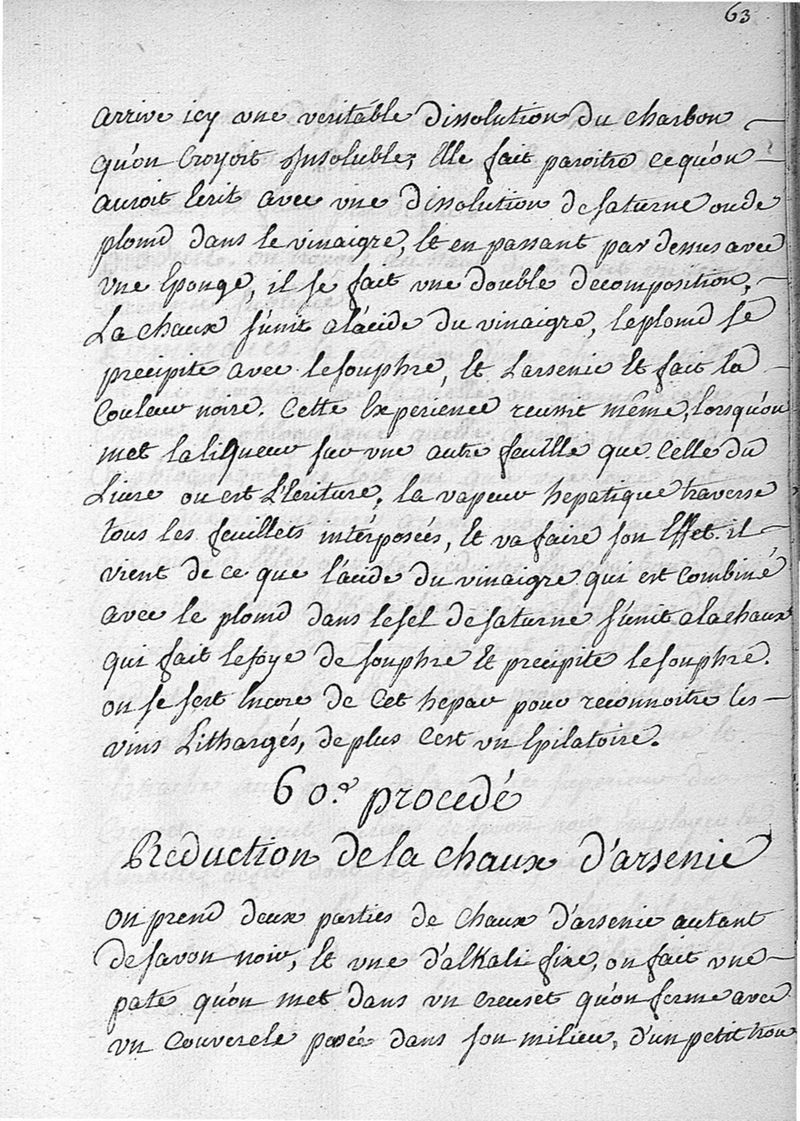 63
arrive icy une veritable dissolution du charbon
qu'on croyoit insoluble; Elle fait paroitre ce qu'on
auroit écrit avec une dissolution de saturne ou de
plomb dans le vinaigre, et en passant par dessus avec
une Eponge, il se fait une double decomposition,
La chaux s'unit a l'acide du vinaigre, le plomb se
precipite avec le souphre, et L'arsenic et fait la
Couleur noire. Cette Experience reussit même, lorsqu'on
met la liqueur sur une autre feuille que Celle du
Livre ou est L'Ecriture, la vapeur hepatique traverse
tous les feuillets interposées, et va faire son Effet. il
vient de ce que l'acide du vinaigre qui est Combiné
avec le plomb dans le sel de saturne s'unit a la chaux
qui fait le foye de souphre et precipite le souphre.
on se sert Encore de Cet hepar pour reconnoitre les
vins Lithargés, de plus C'est un Epilatoire.
60.e procedé
Reduction de la chaux d'arsenic
on prend deux parties de Chaux d'arsenic autant
de savon noir, et une d'alkali fixe, on fait une
pate qu'on met dans un creuset qu'on ferme avec
un Couvercle percé dans son milieu, d'un petit trou